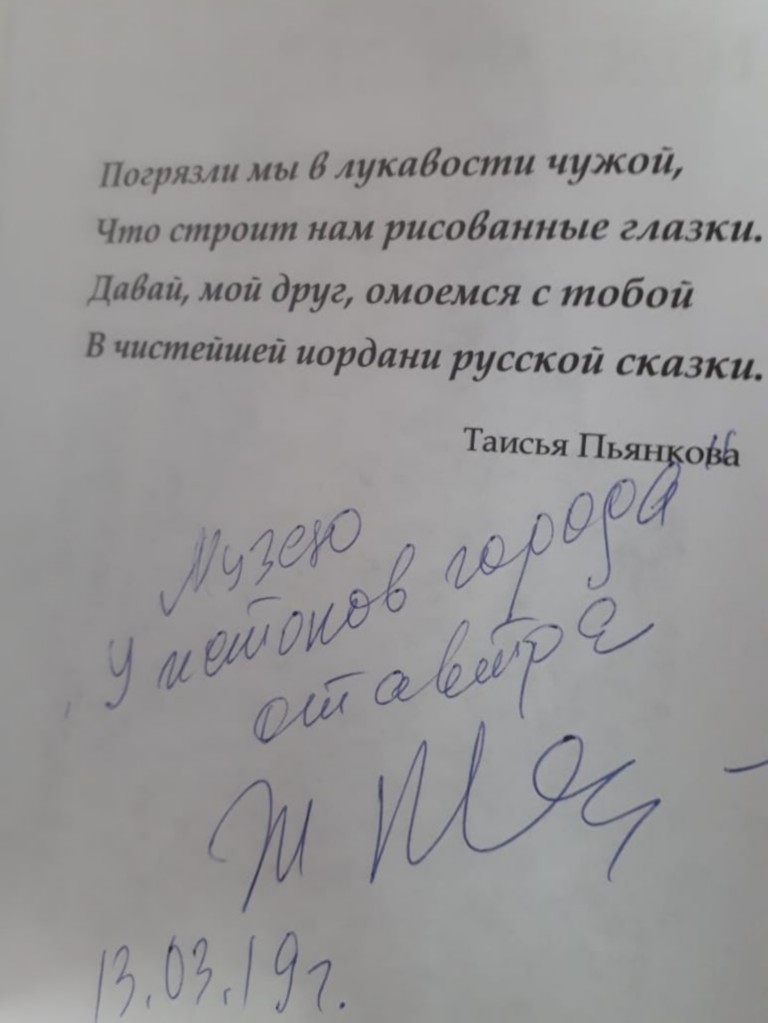 Погрязли мы в лукавости чужой,
Что строит нам рисованные глазки.
Давай, мой друг, омоемся с тобой
В чистейшей иордани русской сказки.
Таисья Пьянкова
Музею
У истоков города"
от автора
13.03.19г.